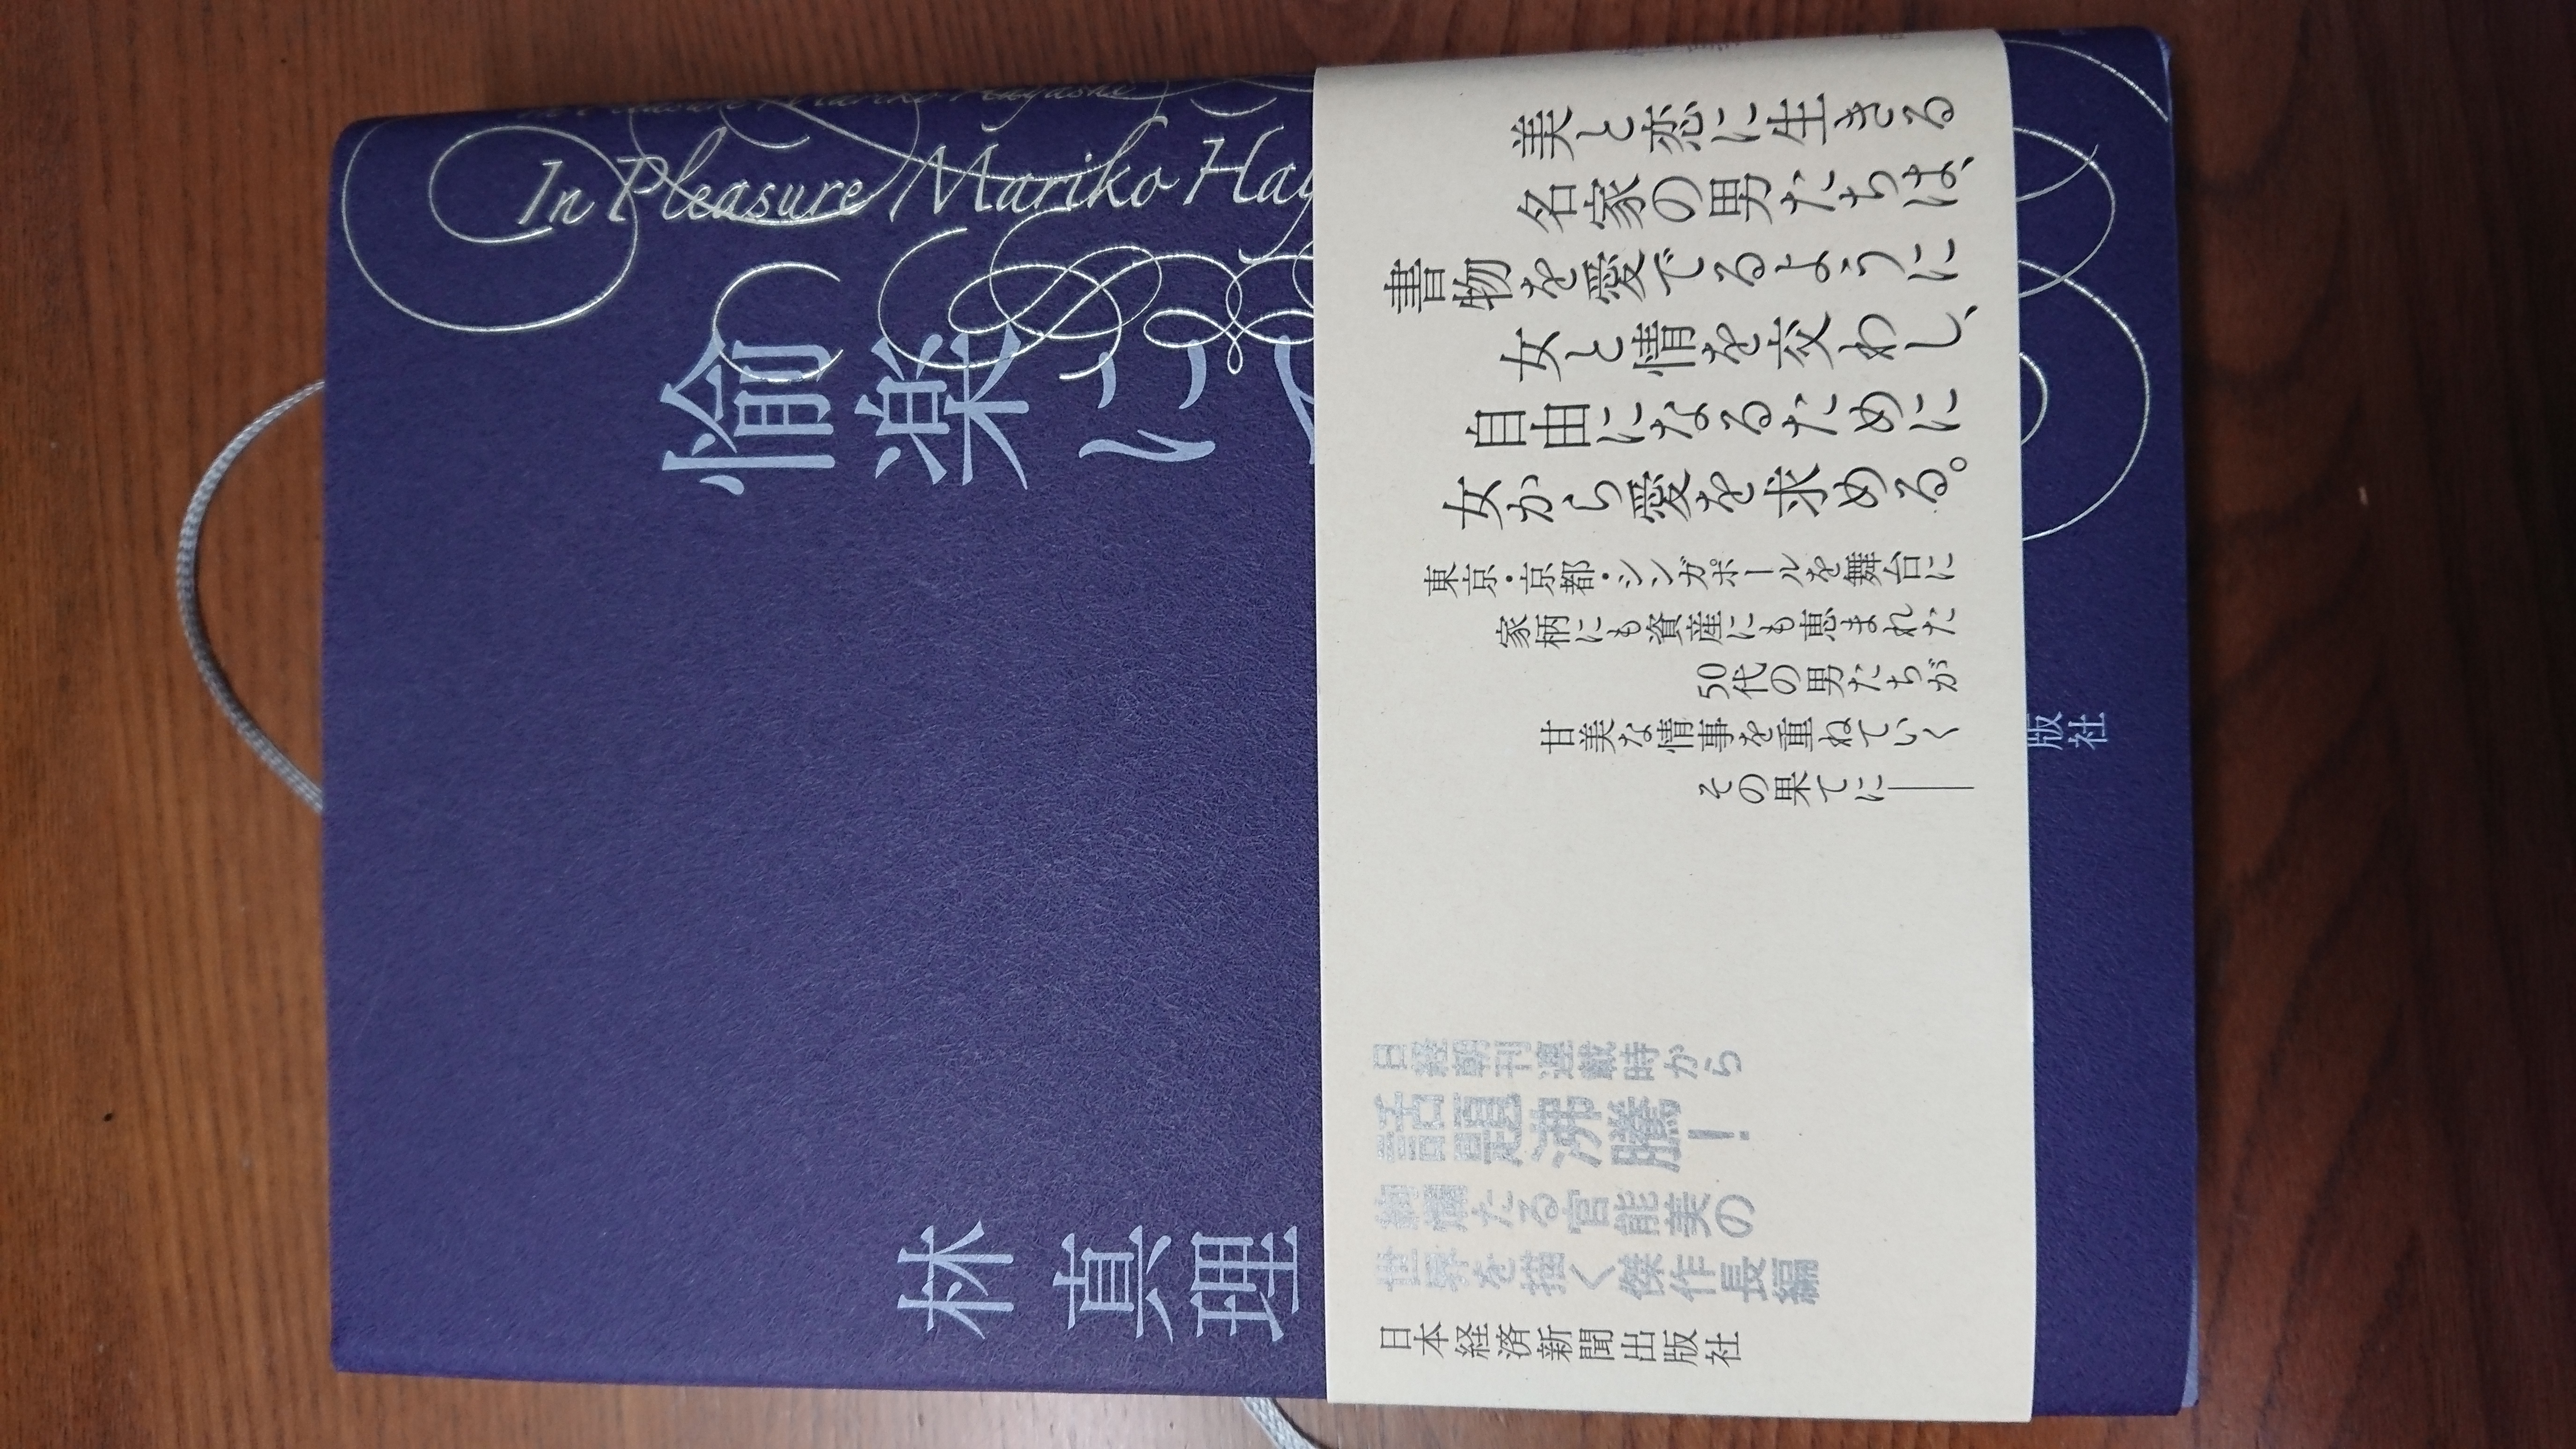 In Pleasure Mariko Hay
愉楽に
林 真理
美と恋に生きる
名家の男たちは、
書物を愛でるように
女と情を交わし、
自由になるために
女から愛を求める。
東京・京都・シンガポールを舞台に
家柄にも資産にも恵まれた
50代の男たちが
甘美な情事を重ねていく
その果てに――
日経朝刊連載時から
話題沸騰!
絢爛たる官能美の
世界を描く傑作長編
日本経済新聞出版社
版社